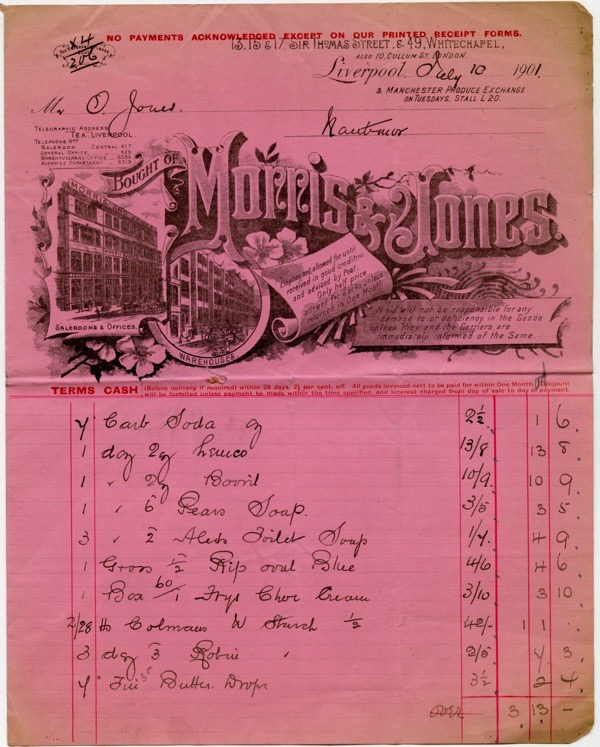 NO PAYMENTS ACKNOWLEDGED EXCEPT ON OUR PRINTED RECEIPT FORMS.
X4
206
13, 15 & 17, SIR THOMAS STREET, & 49, WHITECHAPEL,
ALSO 10, CULLUM ST. LONDON.
Liverpool, July 10 1901.
& MANCHESTER PRODUCE EXCHANGE
ON TUESDAYS, STALL L 20.
Mr O. Jones.
Nantmor
TELEGRAPHIC ADDRESS
"TEA, LIVERPOOL."
TELEPHONE Nos
SALEROOM CENTRAL 417
GENERAL OFFICE 429
WAREHOUSEMANS OFFICE 6586
SUNDRIES DEPARTMENT 5319
BOUGHT OF
Morris & Jones.
MORRIS & JONES
Empties not allowed for until
received in good condition
and advised by Post.
Only half price
allowed for Packages unless
returned in One Month.
M & J will not be responsible for any
damage to or deficiency in the Goods
unless they and the Carriers are
immediately informed of the Same.
SALEROOMS & OFFICES.
WAREHOUSES
TERMS CASH (Before delivery if required) within 28 days, 2½ per cent. off. All goods invoiced nett to be paid for within One Month, discount
will be forfeited unless payment be made within the time specified, and interest charged from day of sale to day of payment.
4 Carb Soda 2½ 1 6.
1 doz 2oz 13/8 13 8
1 " 2oz Bovril 10/9 10 9
1 " 6 Pears Soap. 3/5 3 5
3 " 2 Toilet Soap 1/7 4 9
1 Gross ½ Rip oval Blue 4/6 4 6
1 Box 60/1 Frys Choc Cream 3/10 3 10
2/28 lbs Colmans W Starch ½ 42/- 1 1
3 doz 3 Robin " 2/5 7 3
Butter Drops 3½ 2 4
3 13 -